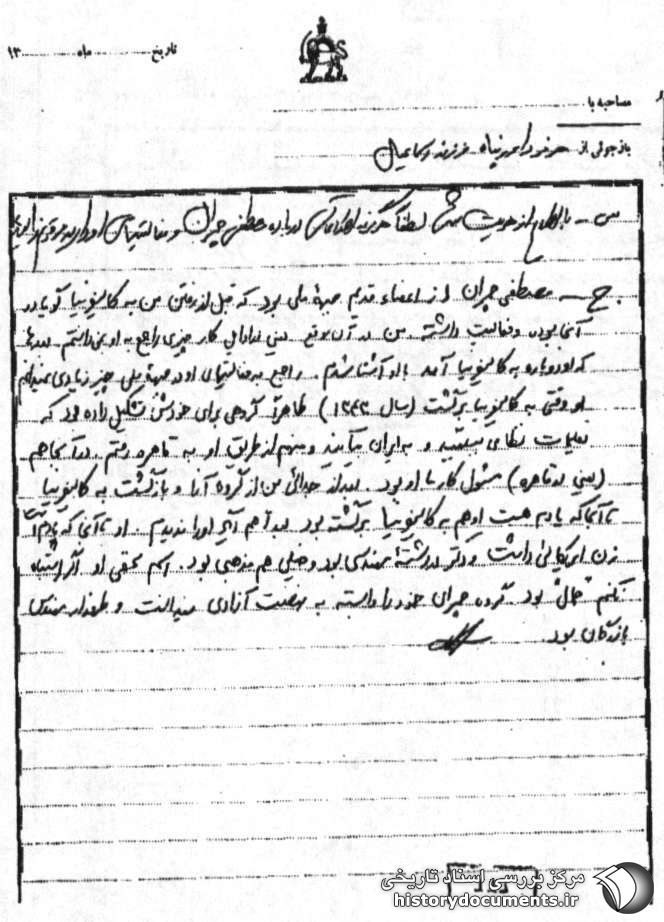 تاریخ ماه ۱۳
مصاحبه با
بازجوئی از فرزند اسماعیل
س – با اعلام از هویت شما لطفاً هرگونه اطلاعاتی درباره مصطفی چمران و فعالیتهای او دارید
ج – مصطفی چمران از اعضاء قدیم جبهه ملی بود که قبل از رفتن من به کالیفرنیا گویا در
آنجا بوده و فعالیت داشته من در آن موقع یعنی اوایل کار چیزی راجع به او نمیدانستم. بعداً
که او دوباره به کالیفرنیا آمد با او آشنا شدم. راجع به فعالیتهای او در جبهه ملی چیز زیادی نمیدانم
او وقتی به کالیفرنیا برگشت (سال ۱۳۴۲) ظاهراً گروهی برای خودش تشکیل داده بود که
تعلیمات نظامی ببینند و به ایران بیایند و منهم از طریق او به قاهره رفتم. در آنجا هم
(یعنی در قاهره) مسئول کار ما او بود. بعد از جدائی من از گروه آنها و بازگشت به کالیفرنیا
تا آنجا که یادم هست او هم به کالیفرنیا برگشته بود بعداً هم او را ندیدم. او تا آنجا که یادم
زن امریکائی داشت و دکتر در رشته مهندسی بود و خیلی هم مذهبی بود. اسم مخفی او اگر اشتباه
نکنم "جمال" بود گروه چمران خود را وابسته به نهضت آزادی میدانست و طرفدار مهندس
بازرگان بود.
مرکز بررسی اسناد تاریخی
historydocuments.ir